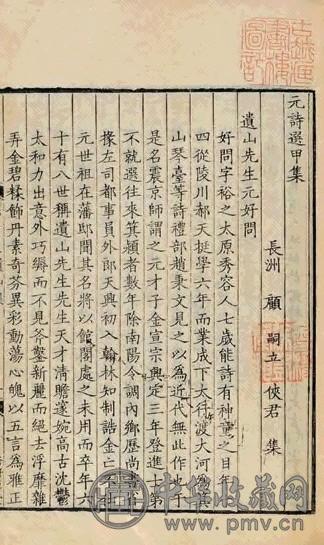 元詩選甲集
長洲 顧 嗣立 俠君 集
遺山先生元好問
好問字裕之太原秀容人七歲能詩有神童之目年十
四從陵川郝天挺學六年而業成下太行渡大河為箕
山琴臺等詩禮部趙秉文見之以為近代無此作也于
是名震京師謂之元才子金宣宗興定三年登進
不就選往來箕潁者數年除南陽令調內鄉歷尚書
掾左司都事員外郎天興初入翰林知制誥金亡
元世祖在藩邸聞其名將以館閣處之未用而卒年六
十有八世稱遺山先生先生天才清贍邃婉高古沈鬱
太和力出意外巧縟而不見斧鑿新麗而絕去浮靡雜
弄金碧糅飾丹素奇芬異彩動蕩心魄以五言為雅正
中华收藏网
www.pmv.cn